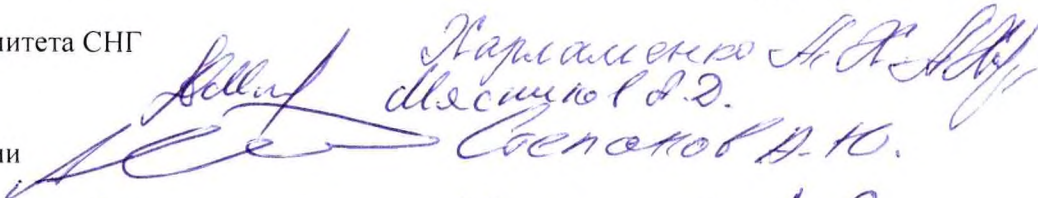 митета СНГ
Харламенко А. К.
Мясников А.Д.
ии Степанов А.Ю.